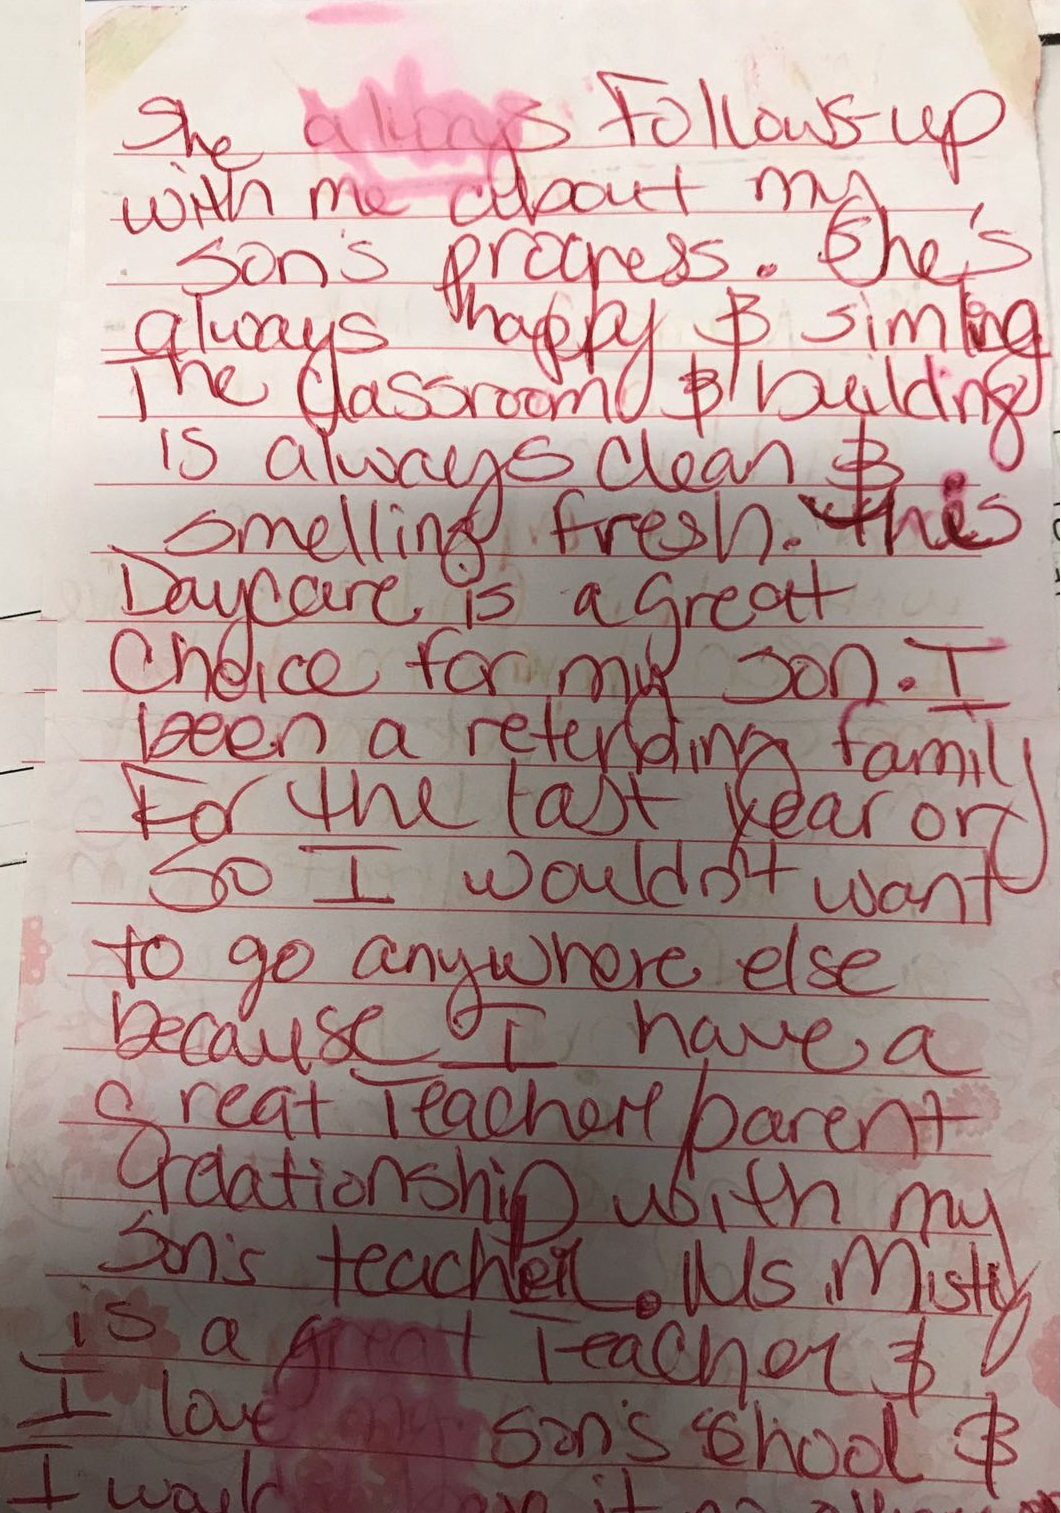 She always Follows-up
with me about my
son's progress. She's
always happy & simling
The classroom & building
is always clean &
smelling fresh. This
Daycare is a great
Choice for my son. I
been a retending family
For the last year or
So I wouldn't want
to go anywhere else
because I have a
Great Teacher/parent
relationship with my
Son's teacher. Ms. Misty
is a great Teacher &
I love my son's Shool &
I would it no